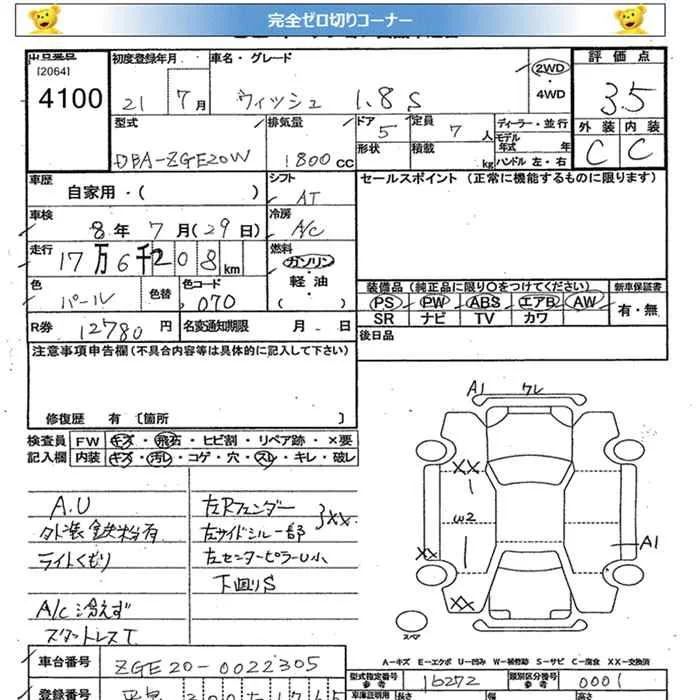 完全ゼロ切りコーナー
出品番号
[2064]
4100
初度登録年月
21 7月
車名・グレード
ウィッシュ 1.8S
2WD
・
4WD
評価点
3.5
外装 内装
C C
型式
DBA-ZGE20W
排気量
1800CC
ドア 5
形状
定員 7人
積載 kg
ディーラー・並行
モデル年式 年
ハンドル 左・右
車歴
自家用・( )
シフト
AT
セールスポイント (正常に機能するものに限ります)
車検
8年 7月(29日)
冷房
A/C
走行
17万6千208km
燃料
ガソリン
・
軽油
・
( )
色
パール
色替
色コード
070
装備品 (純正品に限り○をつけてください)
PS PW ABS エアB AW
SR ナビ TV カワ
新車保証書
有・無
R券 12780円
名変通知期限 月 日
後日品
注意事項申告欄 (不具合内容等は具体的に記入して下さい)
修復歴 有 〔箇所 〕
検査員 FW キズ・飛石・ヒビ割・リペア跡・×要
記入欄 内装 キズ・汚レ・コゲ・穴・スレ・キレ・破レ
A.U
外装鉄粉有
ライトくもり
A/C冷えず
スタットレスT
左Rフェンダー
左サイドシル一部
}XX
左センターピラーU小
下回りS
A1 ワレ
XX
W2
XX
A1
XX
スペア
A-キズ E-エクボ U-凹み W-補修跡 S-サビ C-腐食 XX-交換済
車台番号 ZGE20-0022305
型式指定番号 参考 16272
類別区分番号 参考 0001
登録番号
車庫証明用 長さ 幅 高さ